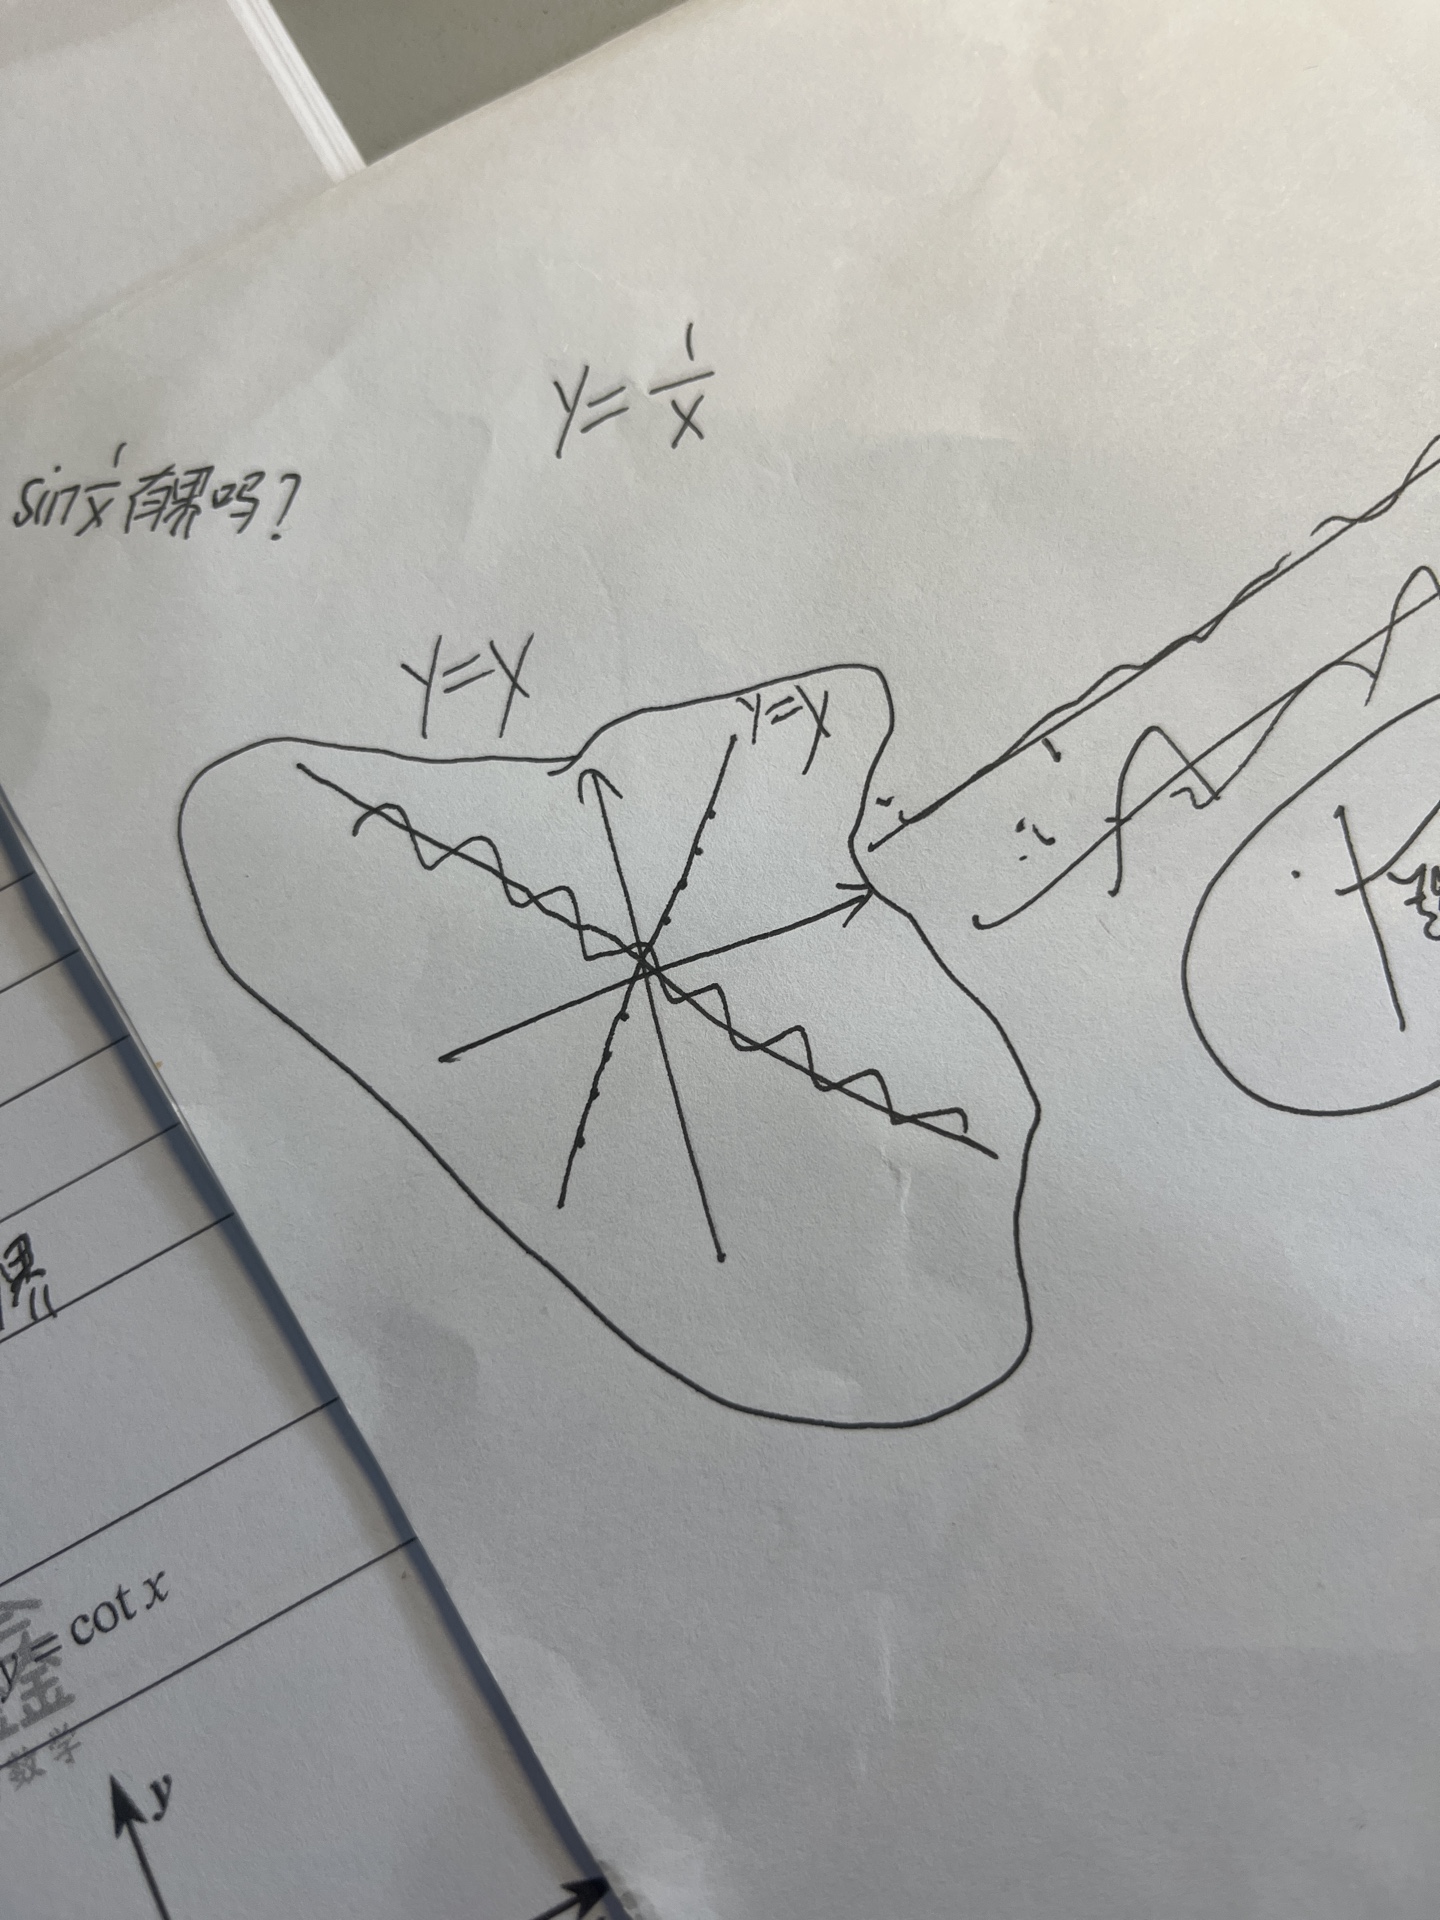 y=1/x
sin1/x有界吗?
y=x
y=x
界
y=cot x
数学
y